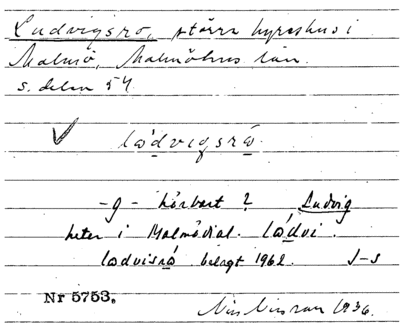 Ludvigsro, större hyreshus i
Malmö, Malmöhus län.
s. delen 54
lødvigsrω
-g- hörbart? Ludvig
heter i Malmödial. lødvi.
lødvisrω belagt 1962. J-s
Nr 5753.
Nils Nilsson 1936.